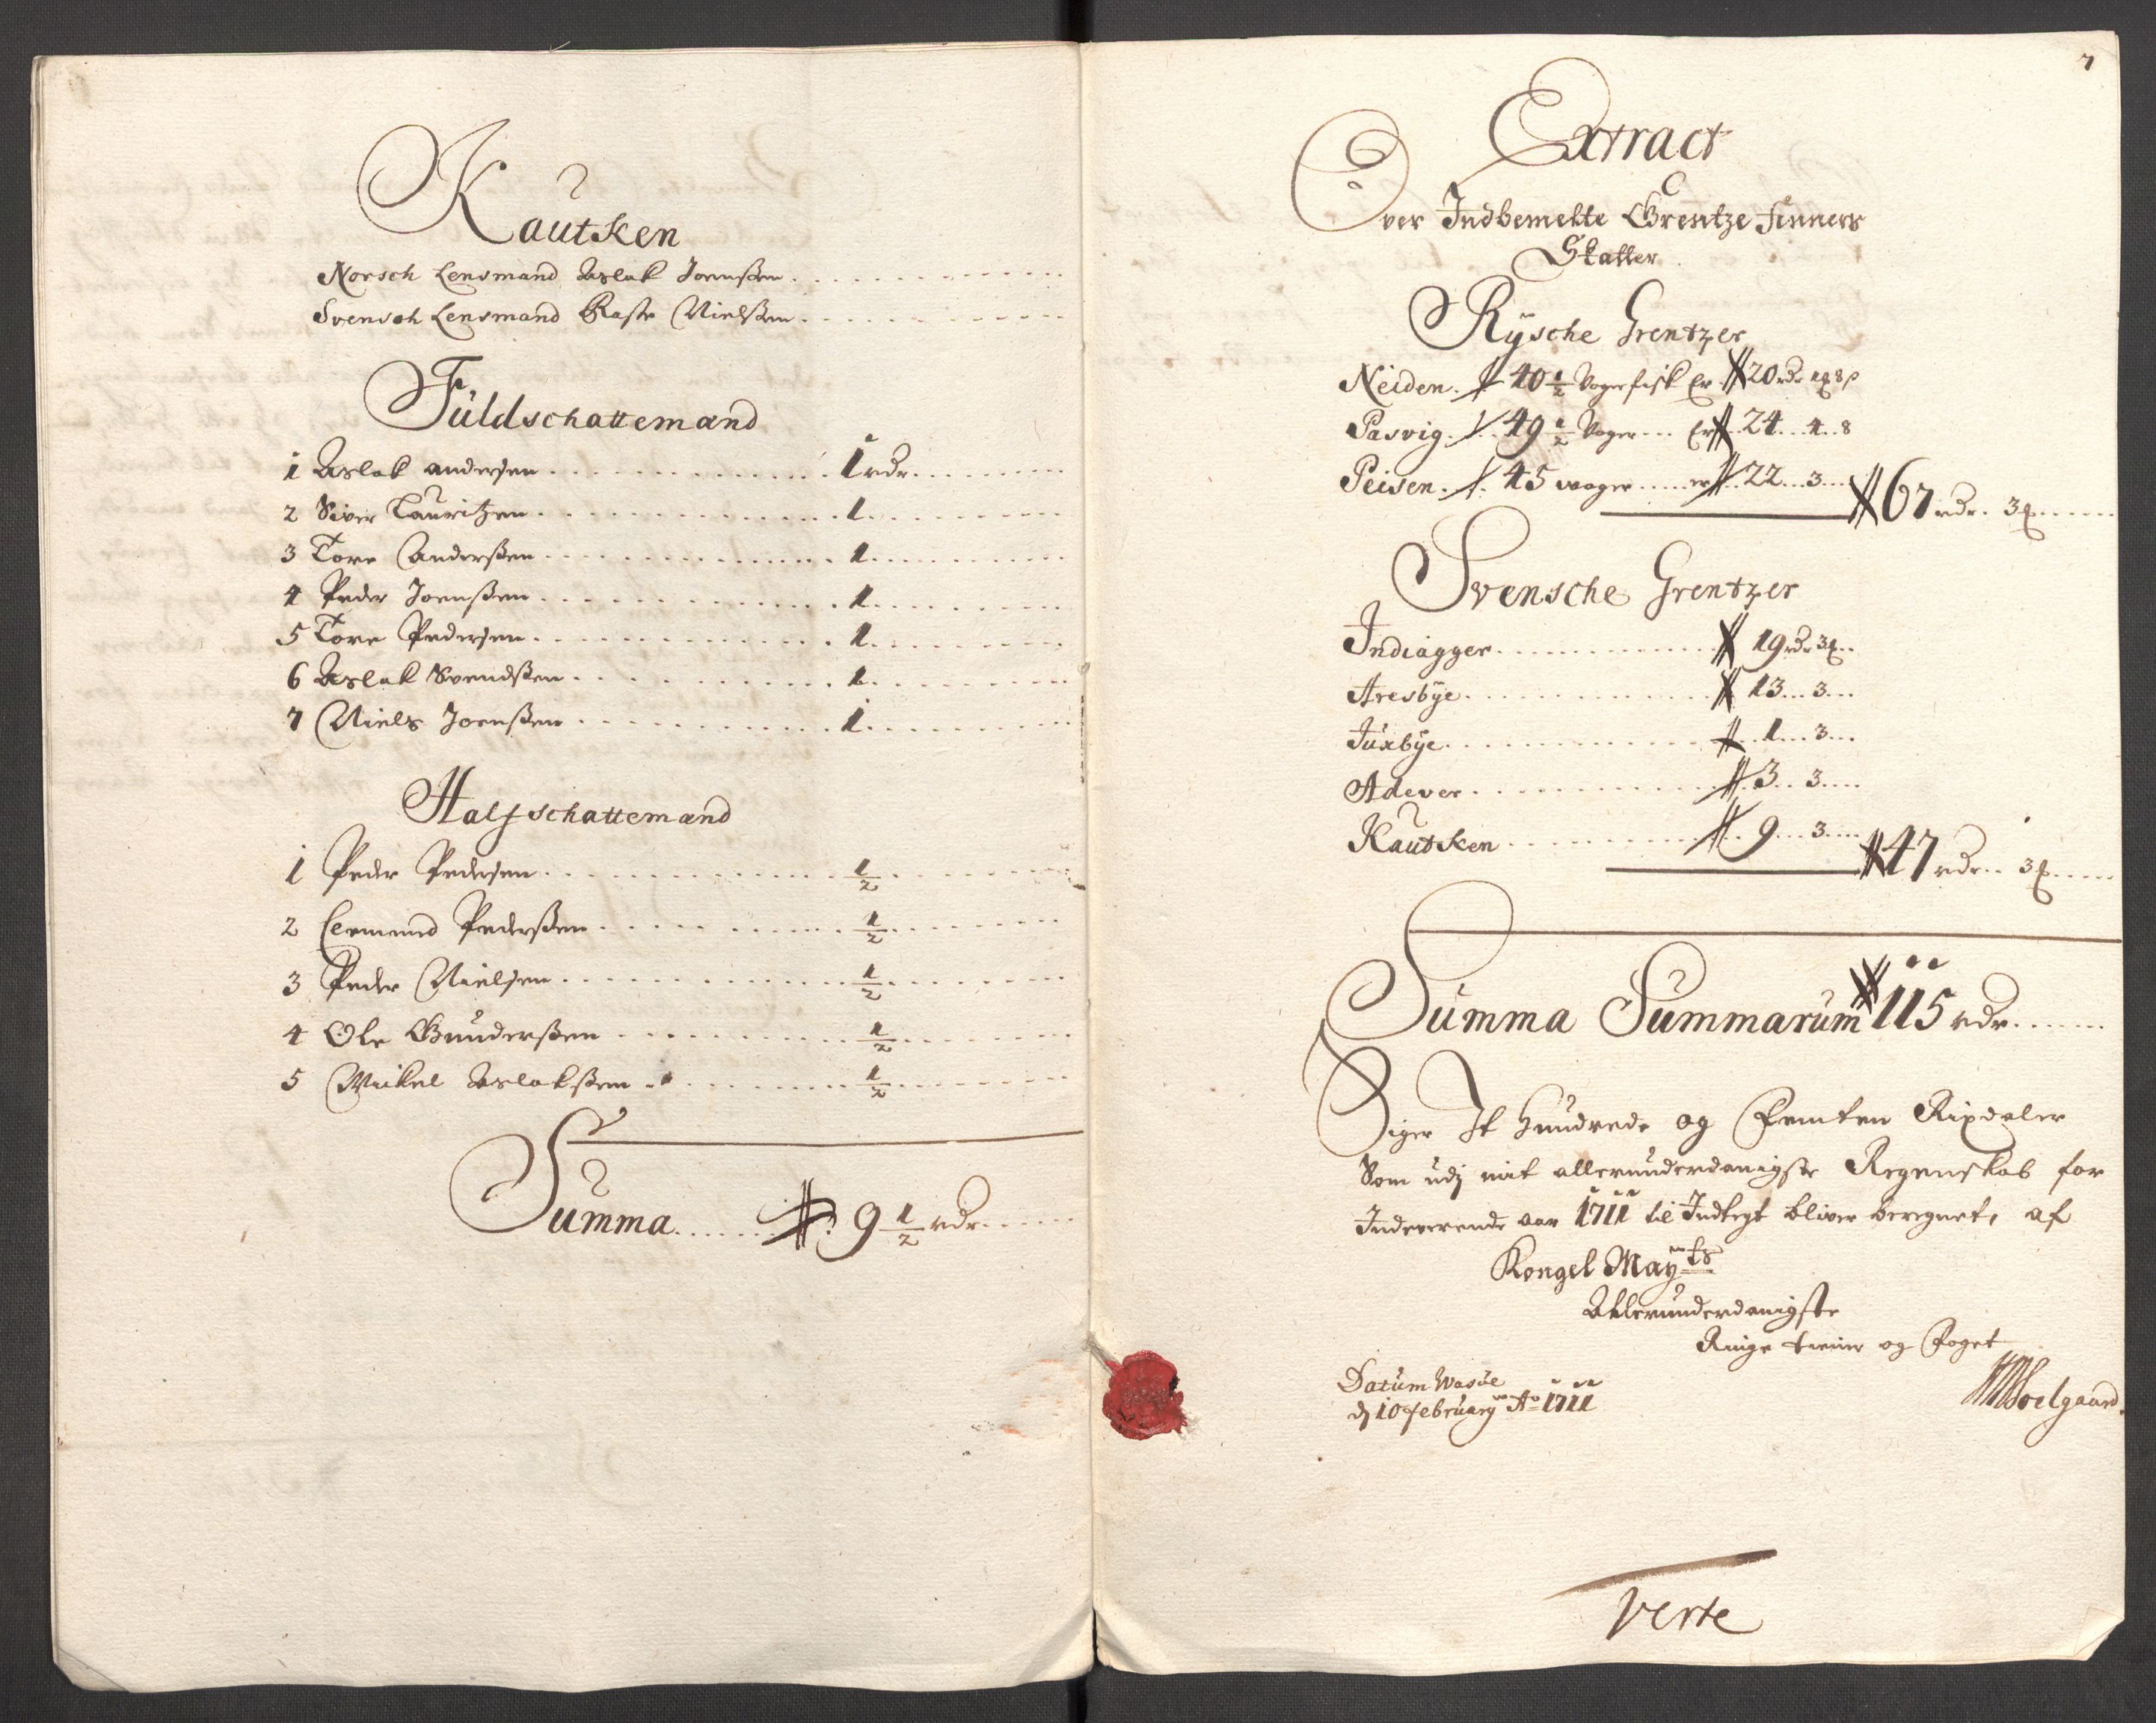 Kautken
Norsch Lensmand Aslak Joenßen
Svensch Lensmand Raste Nielßen
Fuldschattemænd
1 Aslak andersen 1 rdr
2 Siver Lauritzen 1
3 Tore Anderßen 1
4 Peder Joenßen 1
5 Tore Pedersen 1
6 Aslak Svendßen 1
7 Niels Joenßen 1
Halfschattemænd
1 Peder Pedersen 1/2
2 Clemmend Pederßen 1/2
3 Peder Nielsen 1/2
4 Ole Gunderßen 1/2
5 Mickel Aslakßen 1/2
Summa 9 1/2 rdr
7
Extract
Over Indbemelte Grentze Finners
Skatter
Rÿsche Grentzer
Neiden 40 1/2 Woger fisk Er 20 rdr 1 ꝟ 8 β
Pasvig 49 1/2 Woger Er 24 4 8
Peisen 45 woger er 22 3
67 rdr 3 ꝟ
Svensche Grentzer
Indiagger 19 rdr 3 ꝟ
Aresbÿe 13 3
Juxbÿe 1 3
Adever 3 3
Kautken 9 3
47 rdr 3 ꝟ
Summa Summarum 115 rdr
Siger It Hundrede og Femten Rixdaler
Som udj mit allerunderdanigste Regenskab for
Indeverende aar 1711 til Indtegt bliver beregnet, af
Kongel Mayts
Allerunderdanigste
Ringe tiener og Foget
Datum Wasöe
dj 10 februarÿ Ao 1711
Soelgaard
Verte